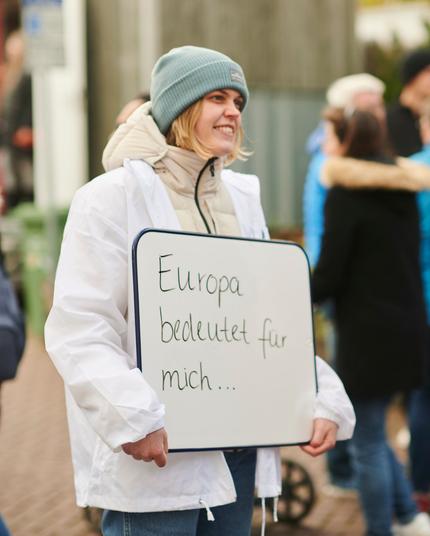 Europa
bedeutet für
mich...